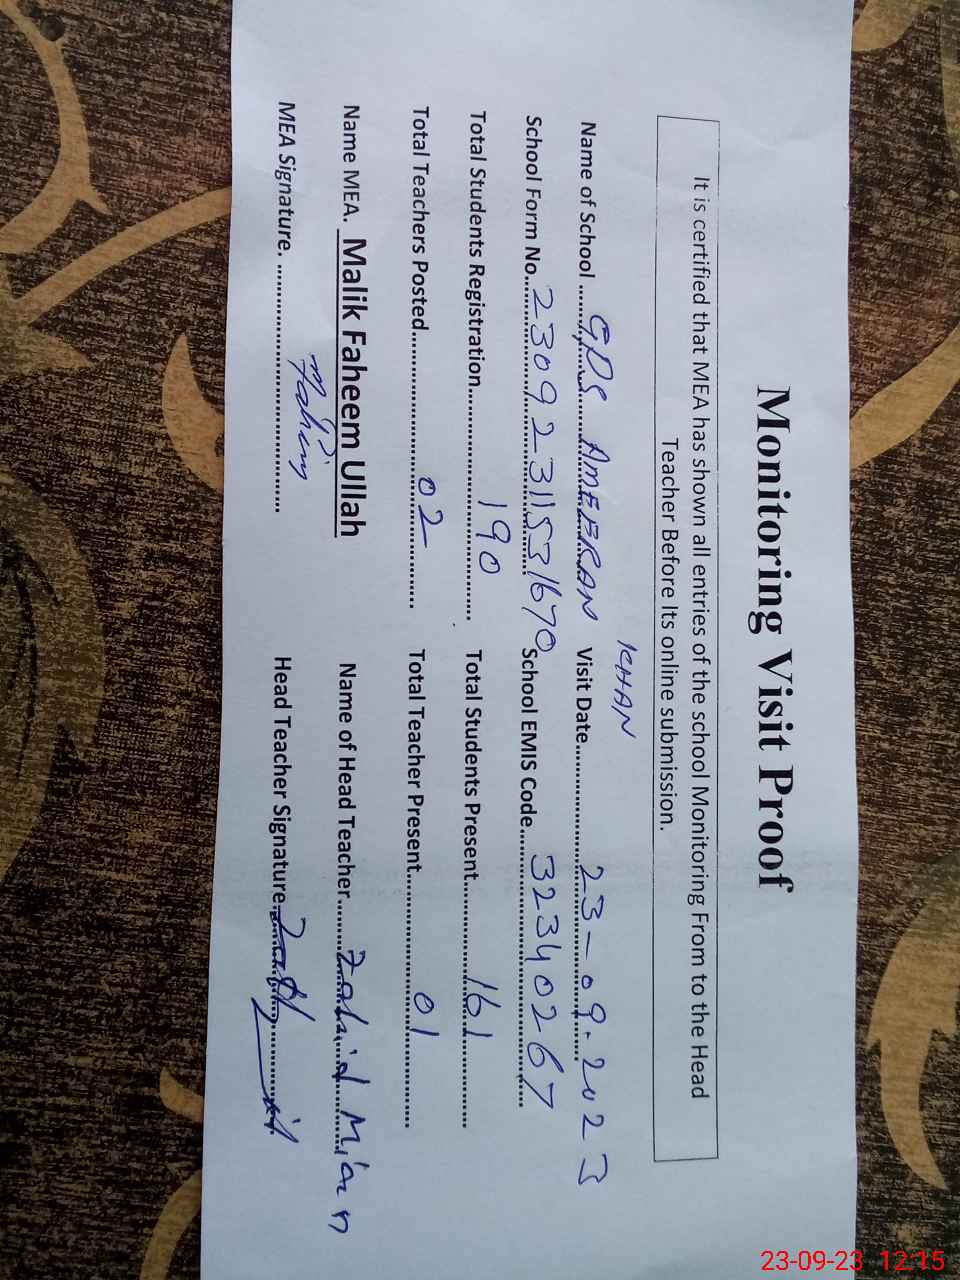 Monitoring Visit Proof
It is certified that MEA has shown all entries of the school Monitoring From to the Head
Teacher Before Its online submission.
KHAN
Name of School ........GPS AMEERAN Visit Date..........23-09-2023
School Form No..23092311531670 School EMIS Code......32340267
Total Students Registration..........190.......... Total Students Present..........161..........
Total Teachers Posted..........02.......... Total Teacher Present..........01..........
Name MEA. Malik Faheem Ullah Name of Head Teacher........Zahid Mian
MEA Signature. ..........Fahim.......... Head Teacher Signature..........
23-09-23 12:15